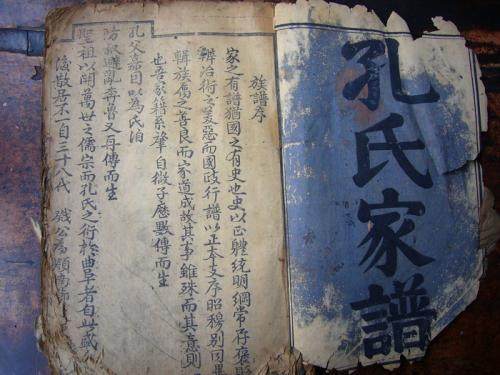 孔氏家譜
族譜序
家之有譜猶國之有史也史以正體統明綱常存褒貶
辨治術之美惡而國政行譜以正本支序昭穆別因
輯族之善良而家道成故其事雖殊而其意則
也吾家籍系肇自微子歷數傳而生
孔父嘉因以為氏洎
防叔避亂奔魯又再傳而生
聖祖以開萬世之儒宗而孔氏之衍於曲阜者自此盛
後散居不一自三十八代 戣公為嶺南節